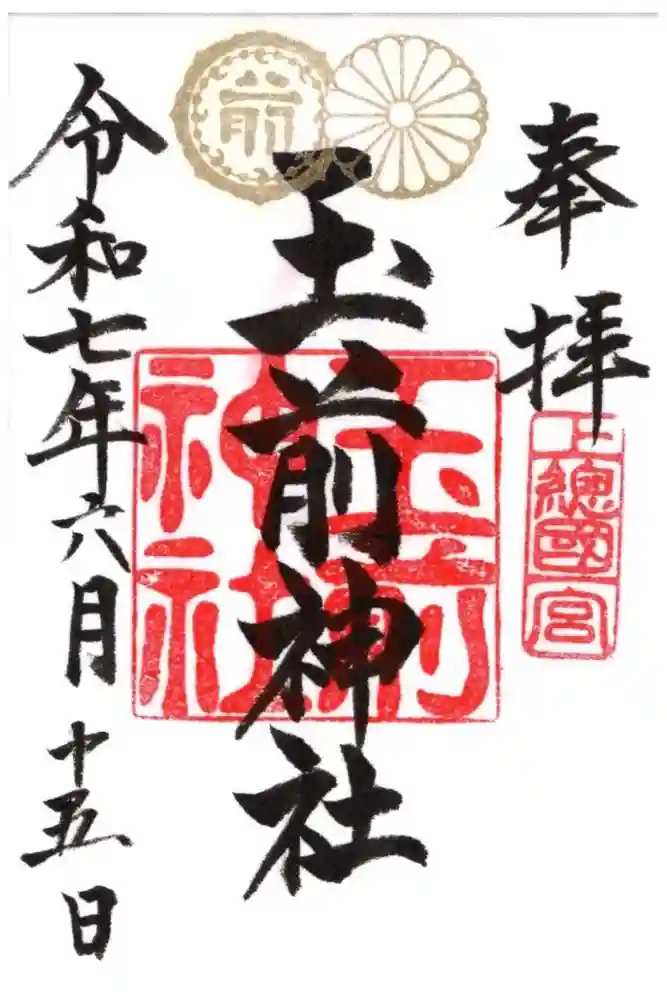 奉拝
上總國一宮
前
玉前神社
玉前神社
令和七年六月十五日